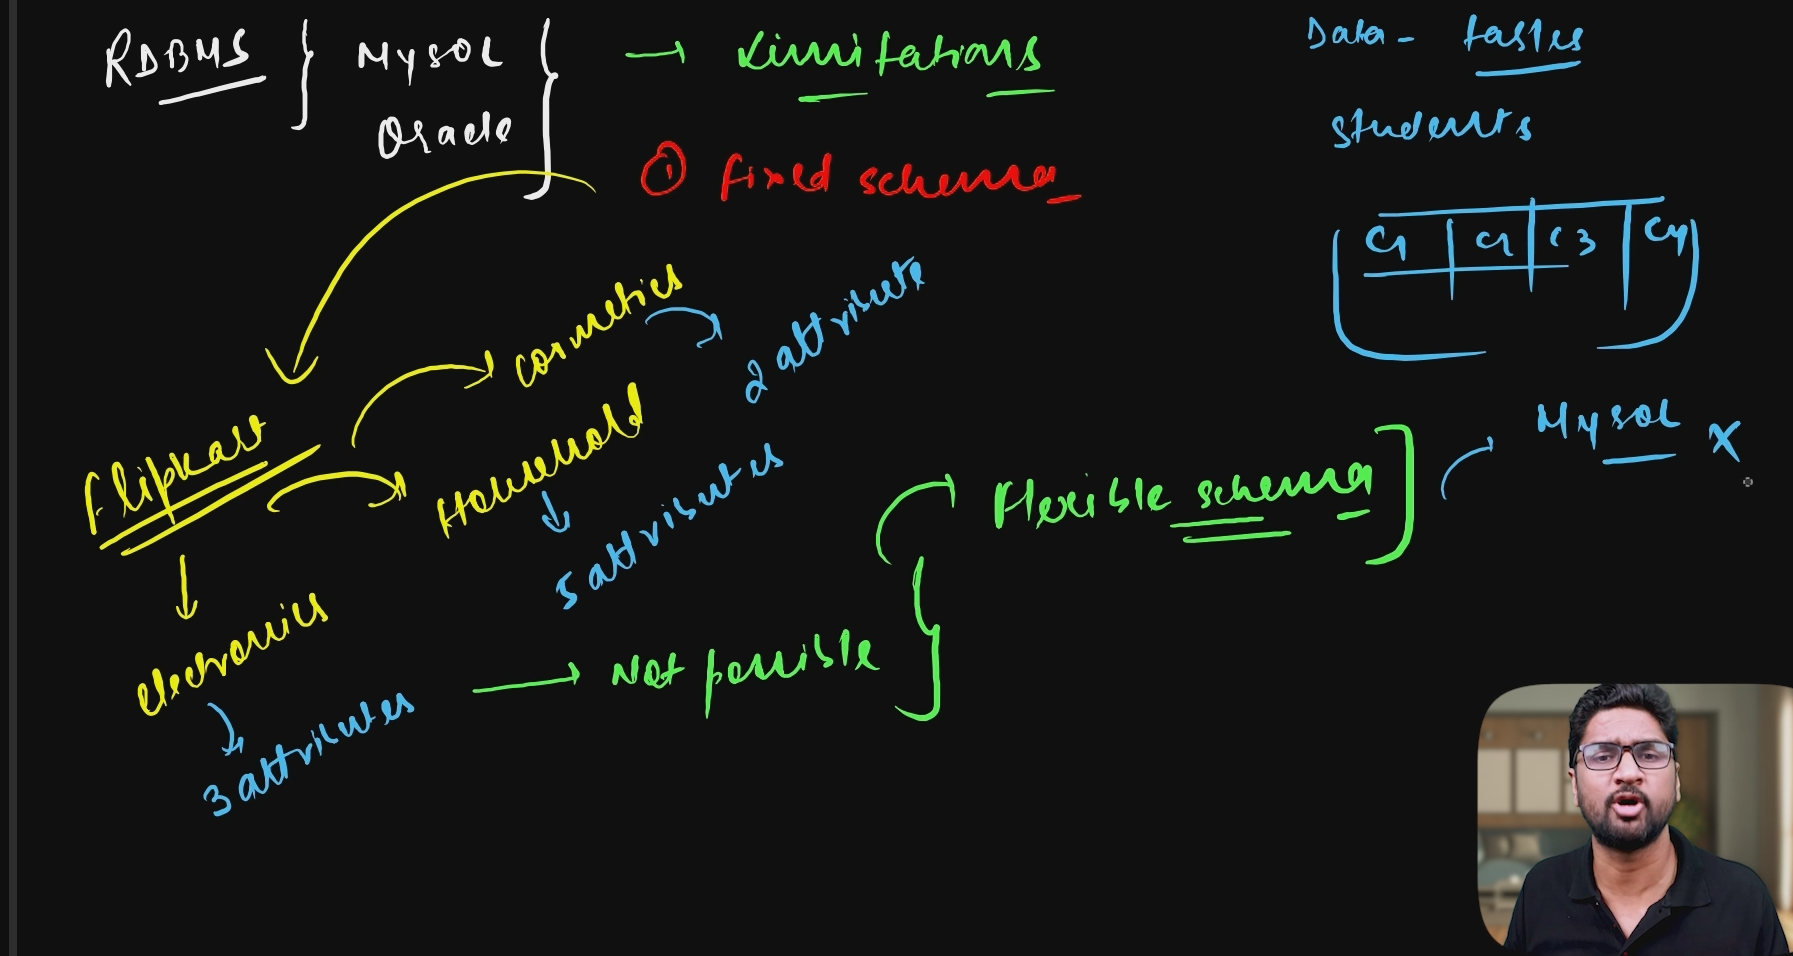 RDBMS
MySQL
Oracle
→ Limitations
① fixed schema
Data - tables
students
C1 C2 C3 C4
Flipkart
cosmetics
2 attribute
Household
5 attributes
electronics
3 attributes
→ Not possible
Flexible schema
MySQL X